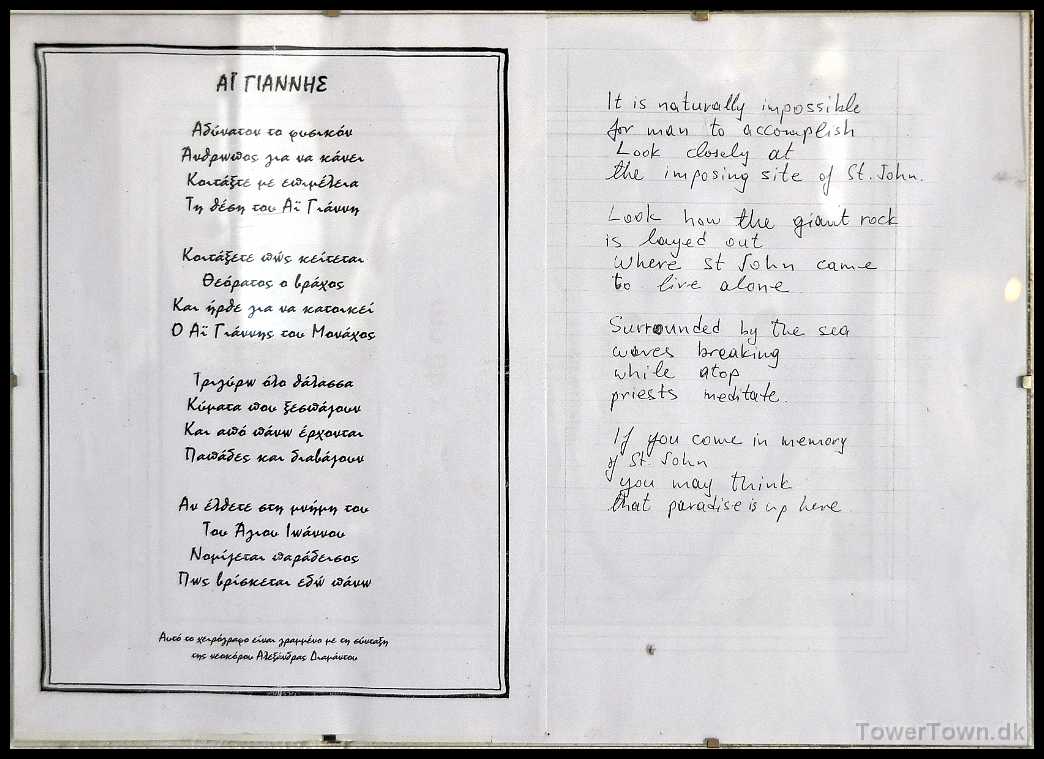 ΑΪ ΓΙΑΝΝΗΣ
Αδύνατον το φυσικόν
Άνθρωπος για να κάνει
Κοιτάξτε με επιμέλεια
Τη θέση του Αϊ Γιάννη
Κοιτάξετε πώς κείτεται
Θεόρατος ο βράχος
Και ήρθε για να κατοικεί
Ο Αϊ Γιάννης του Μονάχος
Τριγύρω όλο θάλασσα
Κύματα που ξεσπάγουν
Και από πάνω έρχονται
Παπάδες και διαβάγουν
Αν έλθετε στη μνήμη του
Του Άγιου Ιωάννου
Νομίγεται παράδεισος
Πως βρίσκεται εδώ πάνω
Αυτό το χειρόγραφο είναι γραμμένο με τη σύνταξη
της νεοκόρου Αλεξάνδρας Διαμάντου
It is naturally impossible
for man to accomplish
Look closely at
the imposing site of St. John.
Look how the giant rock
is layed out
where st John came
to live alone
Surrounded by the sea
waves breaking
while atop
priests meditate.
If you come in memory
of St. John
you may think
that paradise is up here.
TowerTown.dk